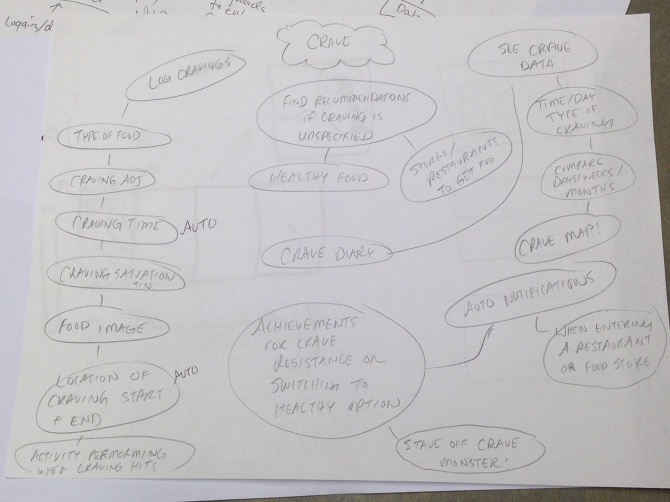 to eat
Data
CRAVE
LOG CRAVINGS
TYPE OF FOOD
CRAVING ADJ
CRAVING TIME AUTO
CRAVING SATIATION
FOOD IMAGE
LOCATION OF AUTO
CRAVING START
+ END
ACTIVITY PERFORMING
WHEN CRAVING HITS
FIND RECOMMENDATIONS
IF CRAVING IS
UNSPECIFIED
HEALTHY FOOD
STORES/
RESTAURANTS
TO GET FOOD
CRAVE DIARY
ACHIEVEMENTS
FOR CRAVE
RESISTANCE OR
SWITCHING TO
HEALTHY OPTION
STAVE OFF CRAVE
MONSTER!
SEE CRAVE
DATA
TIME/DAY
TYPE OF
CRAVING
COMPARE
DAYS/WEEKS/
MONTHS
CRAVE MAP!
AUTO NOTIFICATIONS
WHEN ENTERING
A RESTAURANT
OR FOOD STORE